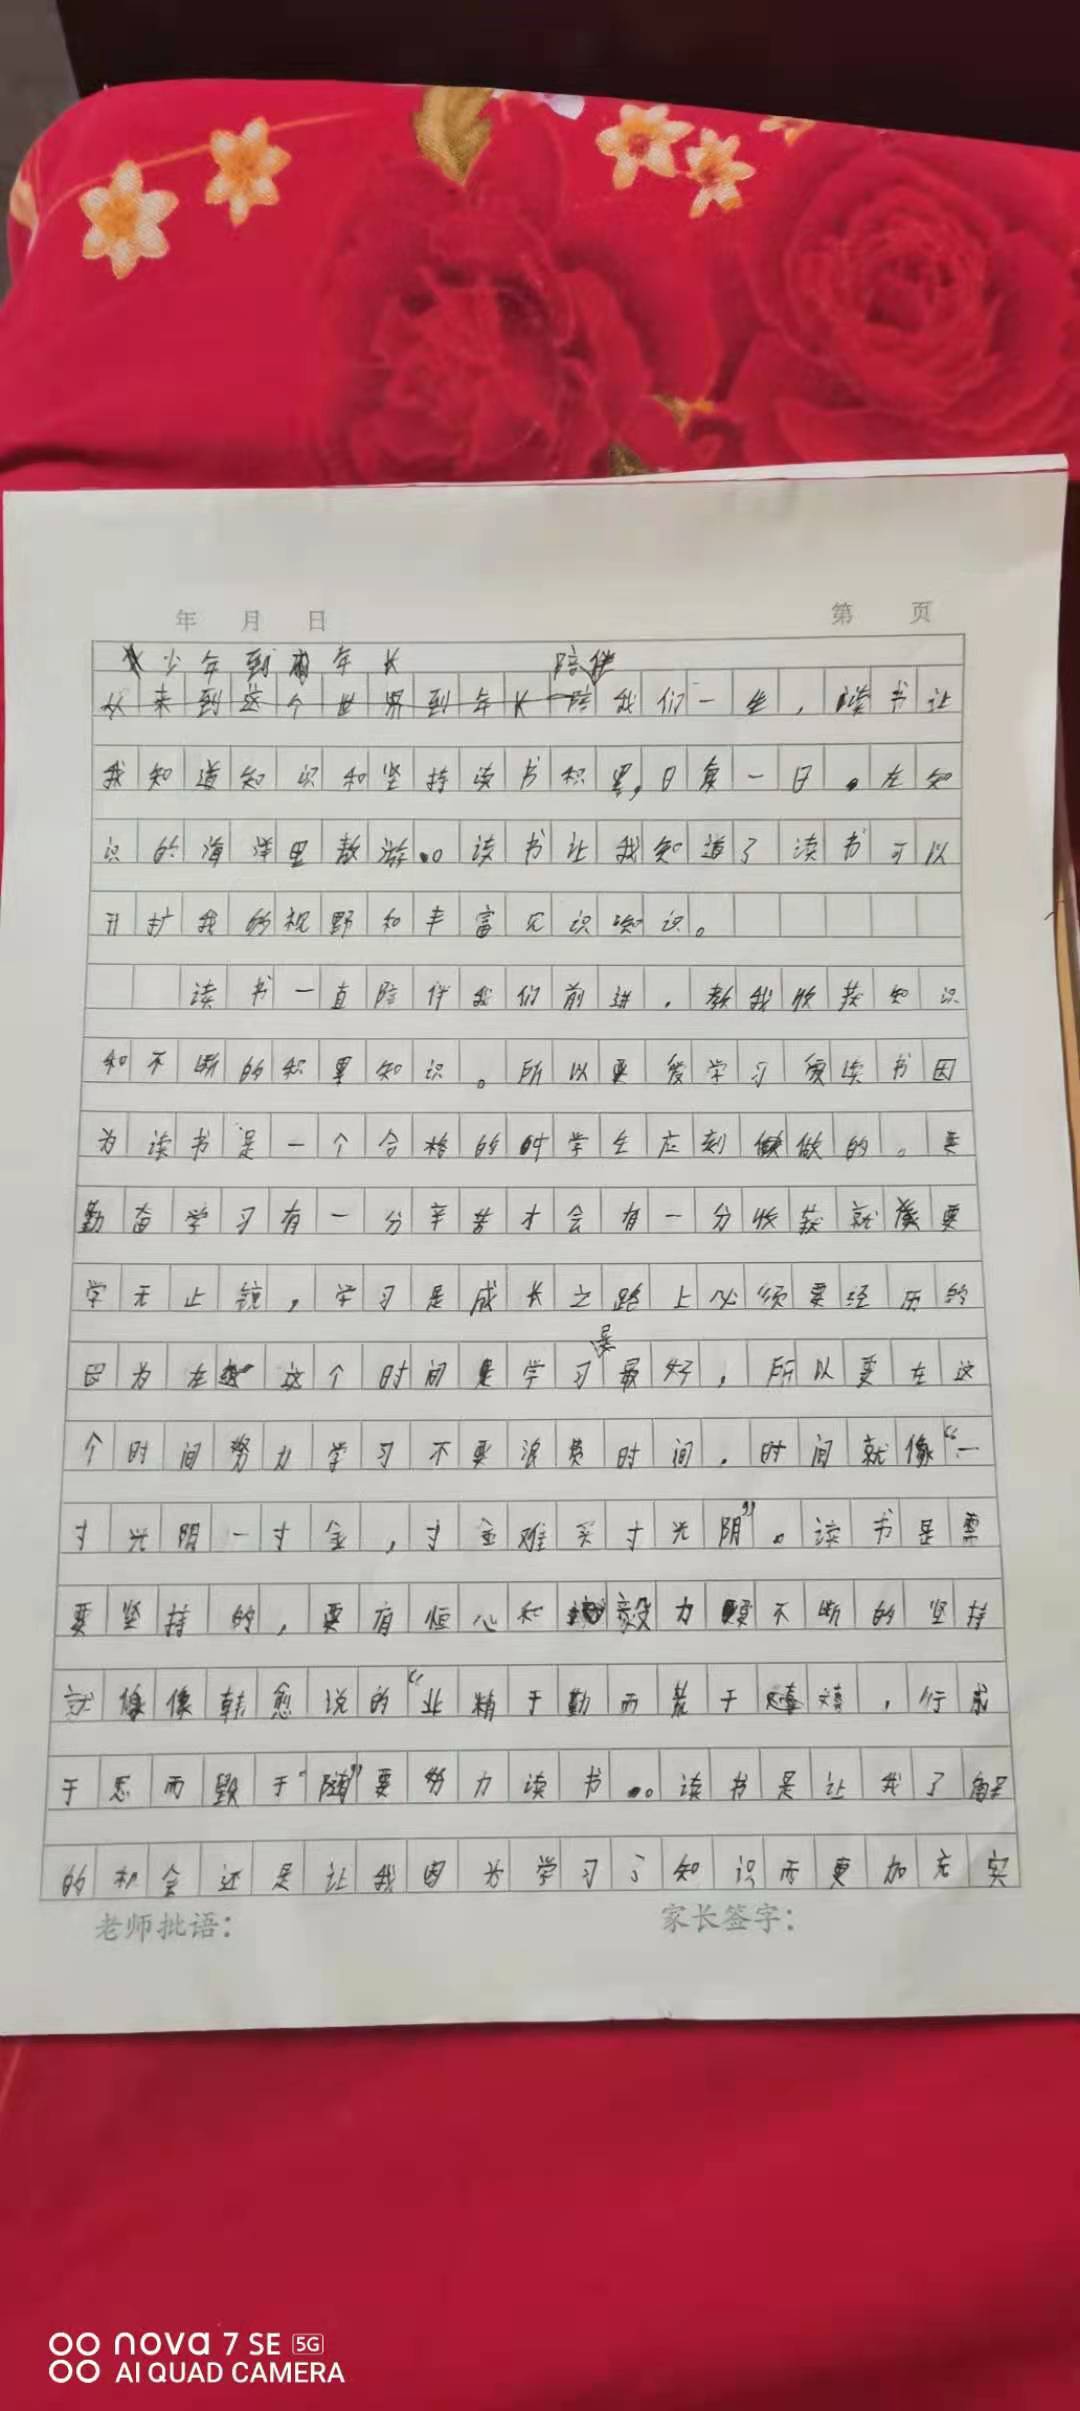 年 月 日 第 页
少年到 年长 陪伴
从来到这个世界到年长陪我们一生,读书让
我知道知识和坚持读书积累,日复一日。在知
识的海洋里敖游。读书让我知道了读书可以
开扩我的视野和丰富见识知识。
读书一直陪伴我们前进,教我收获知识
和不断的积累知识。所以要爱学习爱读书因
为读书是一个合格的时学生应刻做做的。要
勤奋学习有一分辛苦才会有一分收获就像要
学无止镜,学习是成长之路上必须要经历的
因为在这个时间是学习最好,所以要在这
是
个时间努力学习不要浪费时间,时间就像“一
寸光阴一寸金,寸金难买寸光阴”。读书是需
要坚持的,要有恒心和毅力 不断的坚持
就像像韩愈说的“业精于勤而荒于嬉嬉,行成
于思而毁于“随”要努力读书。读书是让我了解
的机会还是让我因为学习了知识而更加充实
老师批语: 家长签字:
nova 7 SE 5G
AI QUAD CAMERA